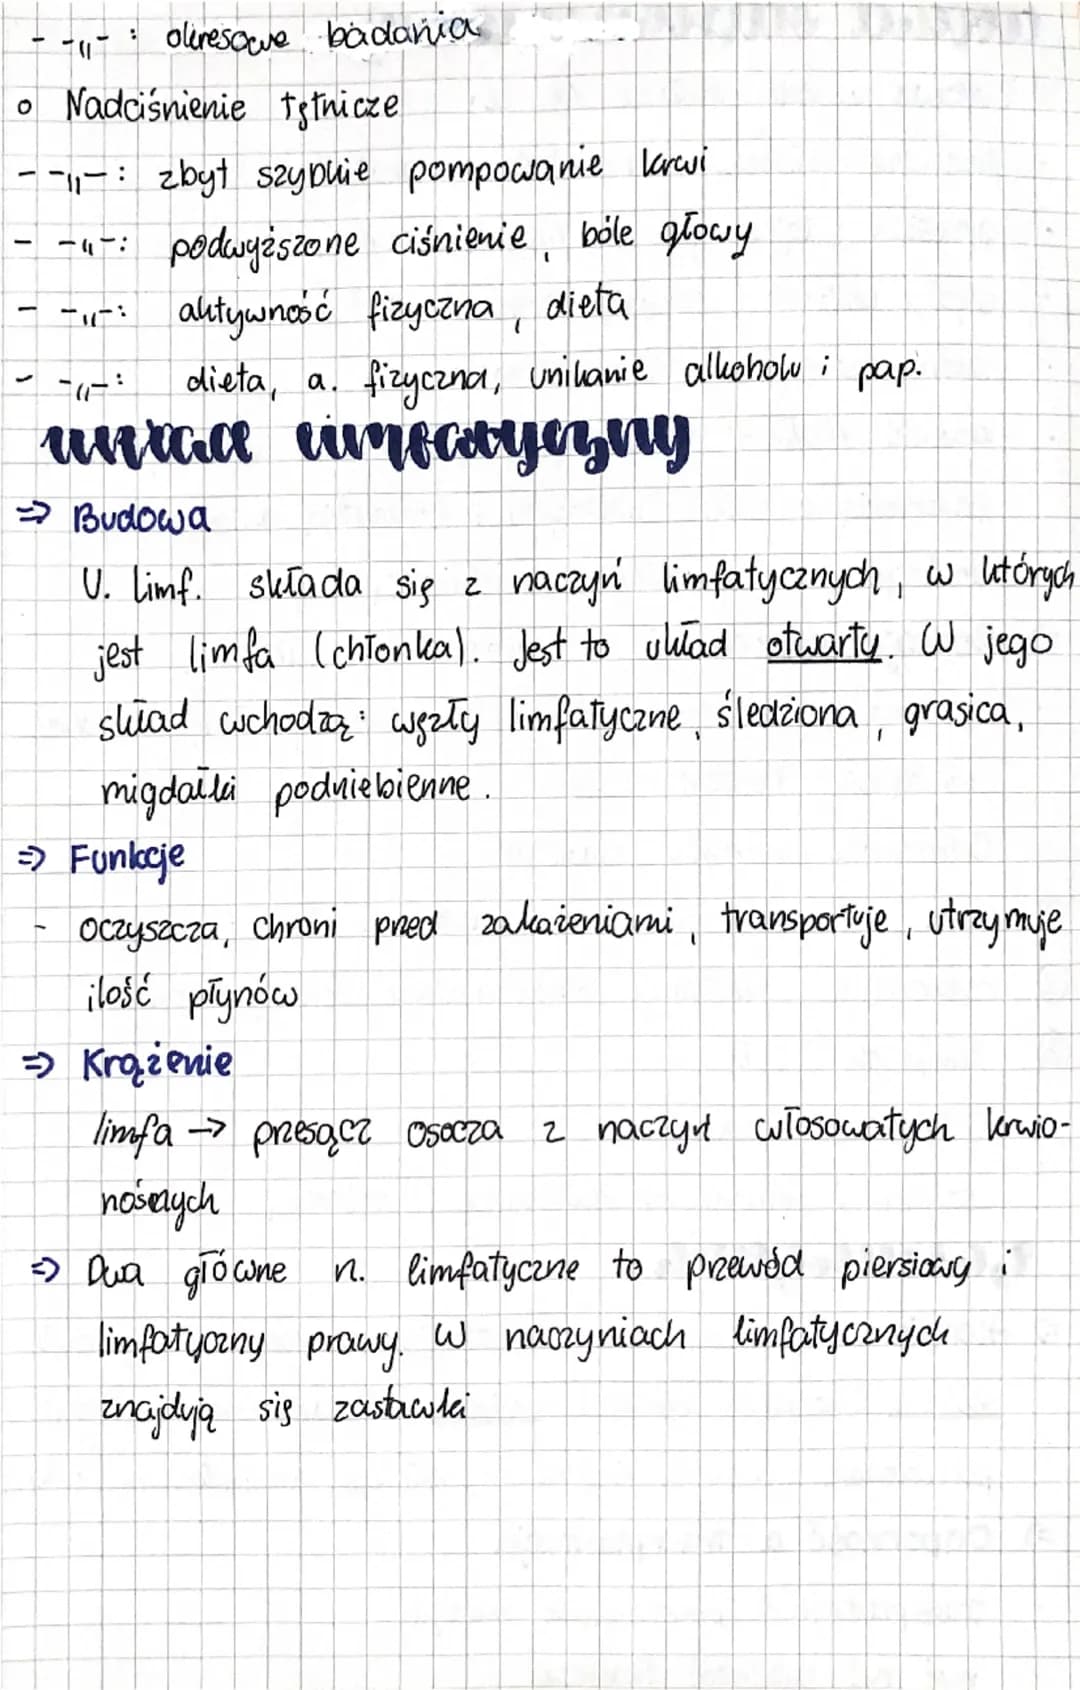 - -||- : okresowe badania
○ Nadciśnienie tętnicze
- -||- : zbyt szybkie pompowanie krwi
- -||- : podwyższone ciśnienie, bóle głowy
- -||- : aktywność fizyczna, dieta
- -||- : dieta, a. fizyczna, unikanie alkoholu i pap.
układ limfatyczny
⇒ Budowa
U. limf. składa się z naczyń limfatycznych, w których
jest limfa (chłonka). Jest to układ otwarty. W jego
skład wchodzą: węzły limfatyczne, śledziona, grasica,
migdałki podniebienne.
⇒ Funkcje
- oczyszcza, chroni przed zakażeniami, transportuje, utrzymuje
ilość płynów
⇒ Krążenie
limfa → przesącz osocza z naczyń włosowatych krwio-
nośnych
⇒ Dwa główne n. limfatyczne to przewód piersiowy i
limfatyczny prawy. W naczyniach limfatycznych
znajdują się zastawki